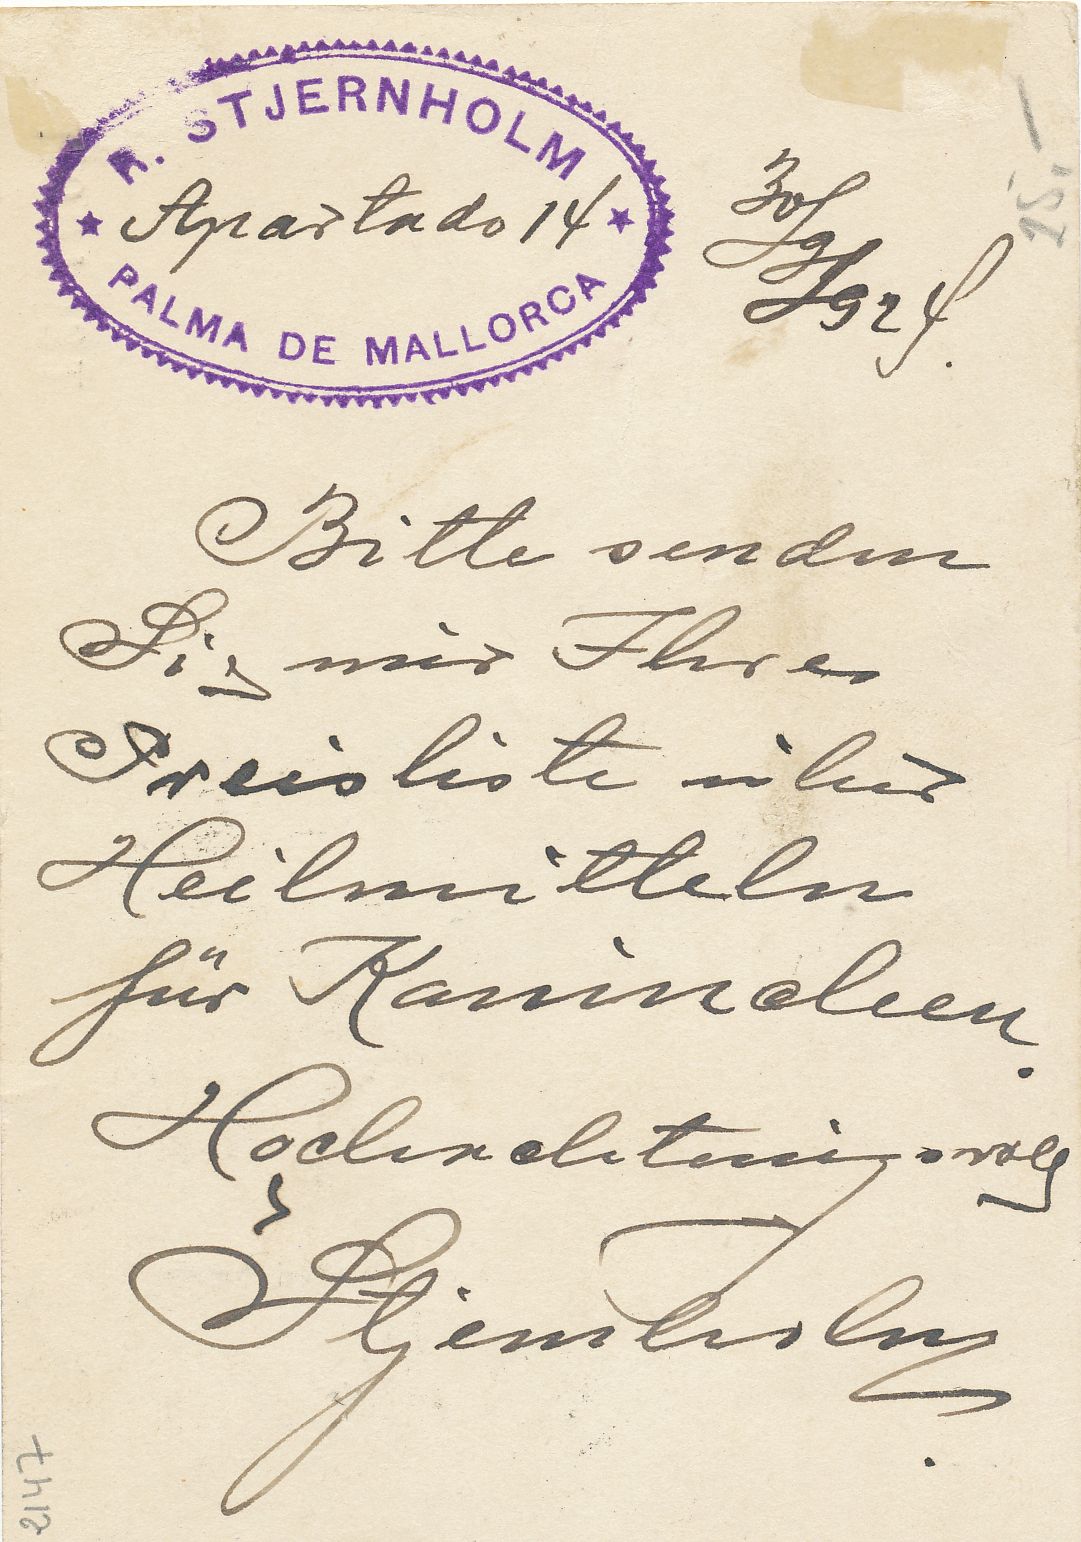 R. STJERNHOLM
Apartado 14
PALMA DE MALLORCA
30/9/1924.
25,—
Bitte senden
Sie mir Ihre
Preisliste über
Heilmitteln
für Kaninchen.
Hochachtungsvoll
Stjernholm.
2147